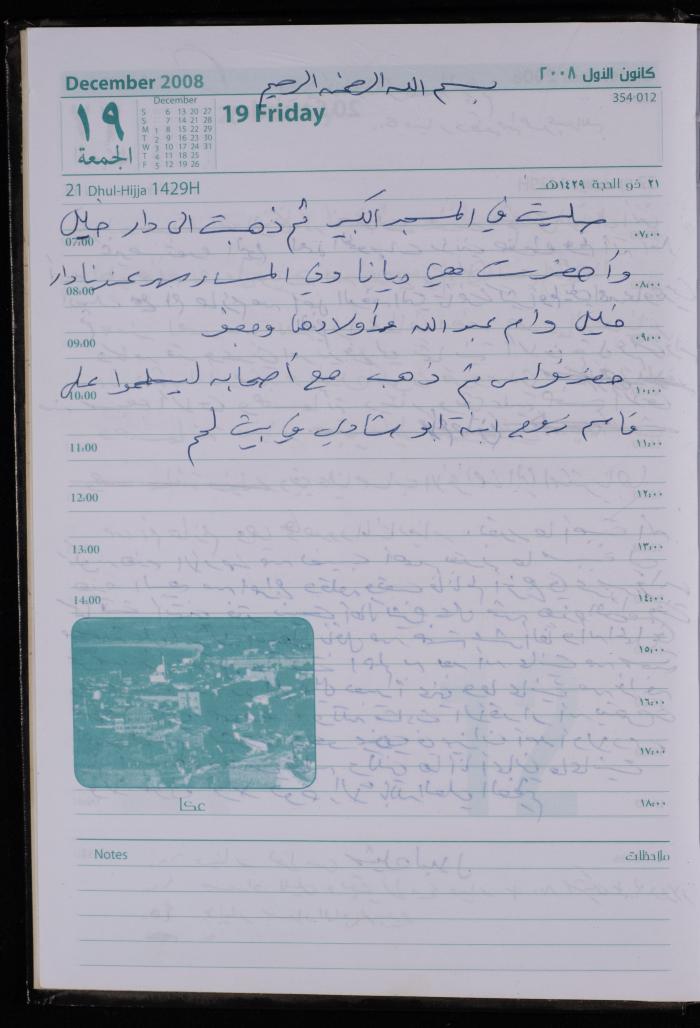 December 2008
كانون الأول ٢٠٠٨
بسم الله الرحمن الرحيم
١٩
الجمعة
December
S 6 13 20 27
S 7 14 21 28
M 1 8 15 22 29
T 2 9 16 23 30
W 3 10 17 24 31
T 4 11 18 25
F 5 12 19 26
19 Friday
354-012
21 Dhul-Hijja 1429H
٢١ ذو الحجة ١٤٢٩هـ
صليت في المسجد الكبير ثم ذهبت الى دار خليل
07:00 ٠٧:٠٠
وأحضرت هي ودیانا وفي المساء سهر عندنا دار
08:00 ٠٨:٠٠
خليل وام عبد الله وأولادها
09:00 ٠٩:٠٠
حضر نواس ثم ذهب مع أصحابه ليسلموا على
10:00 ١٠:٠٠
قاسم زوج ابنة ابو شادي في بيت لحم
11:00 ١١:٠٠
12:00 ١٢:٠٠
13:00 ١٣:٠٠
14:00 ١٤:٠٠
١٥:٠٠
١٦:٠٠
١٧:٠٠
١٨:٠٠
عكا
Notes ملاحظات